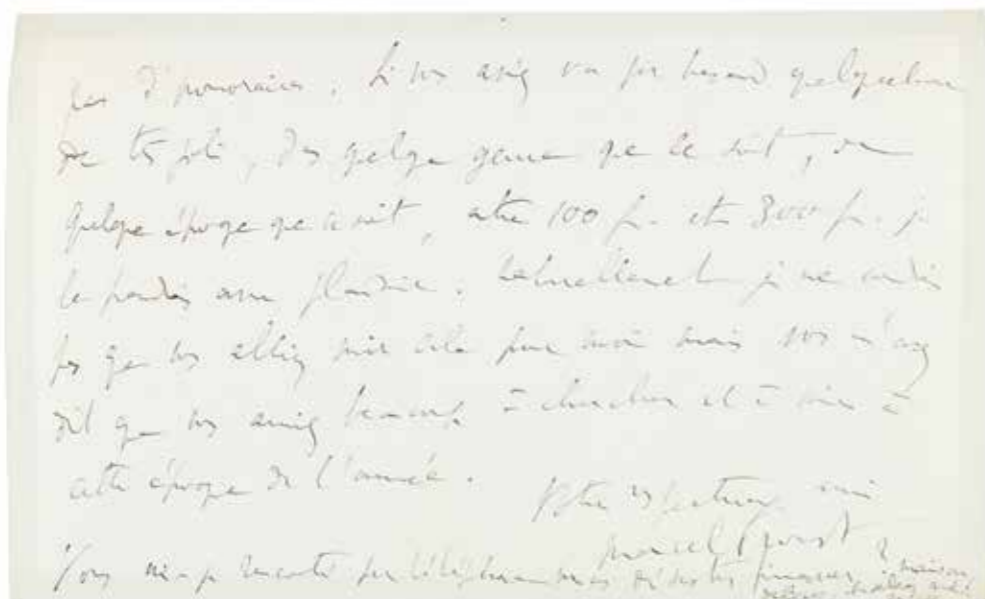 pas d'honoraires. Si vous aviez vu par hasard quelque chose
de très joli, dans quelque genre que ce soit, de
quelque époque que ce soit, entre 100 f. et 300 f. je
le prendrais avec plaisir. Naturellement je ne voudrais
pas que vous alliez voir cela pour moi mais vous m'avez
dit que vous aviez beaucoup à chercher et à voir à
cette époque de l'année.
Votre respectueux ami
Marcel Proust
Vous par téléphone mais